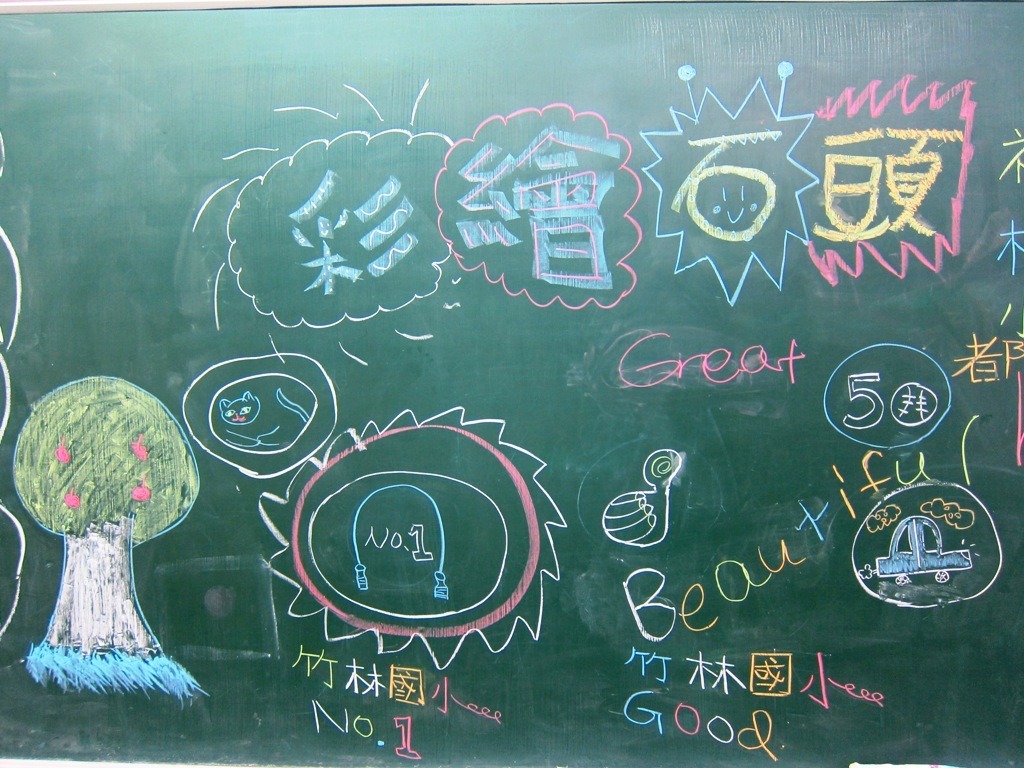 彩繪石頭
Great
50
都
No.1
Beautiful
竹林國小
No.1
竹林國小
Good